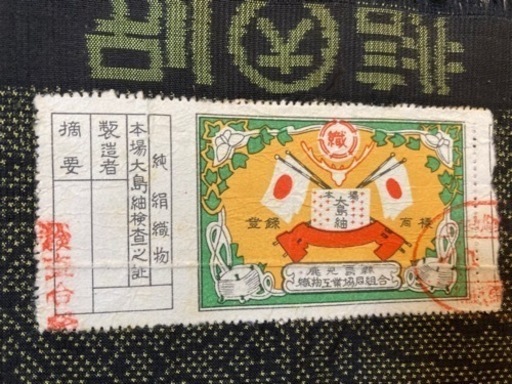 純絹織物
本場大島紬検査之証
製造者
摘要
織
本場
大島紬
登録 商標
鹿児島縣
織物工業協同組合